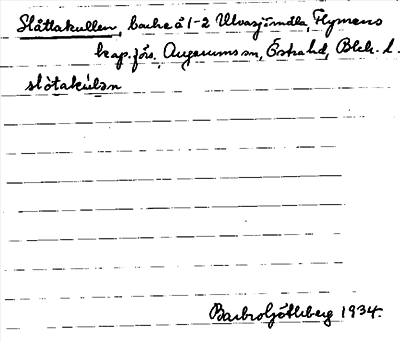 Slåttakullen, backe å 1-2 Ulvasjömåla, Flymens
kap.förs. Augerums sn, Östra hd, Blek. l.
slòtakúlən
Barbro Götheberg 1934.